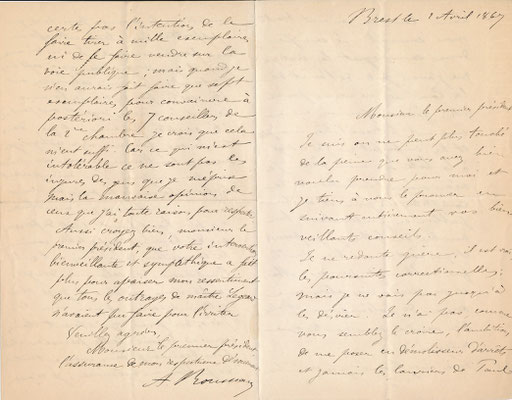 Brest le 2 Avril 1867
Monsieur le premier président
Je suis on ne peut plus touché
de la peine que vous avez bien
voulu prendre pour moi et
je tiens à vous le prouver en
suivant entièrement vos bien
veillants conseils.
Je ne redoute guère, il est vrai
les poursuites correctionnelles,
mais je ne vais pas jusqu'à
les désirer. Je n'ai pas, comme
vous semblez le croire, l'ambition
de me poser en démolisseur d'arrêts
et jamais les lauriers de Paul
certe pas l'intention de la
faire tirer à mille exemplaires
ni de le faire vendre sur la
voie publique; mais quand je
n'en aurais fait faire que sept
exemplaires pour convaincre à
postériori les 7 conseillers de
la 2me chambre je crois que cela
m'eut suffi. Car ce qui m'est
intolérable ce ne sont pas les
injures des gens que je méprise
mais la mauvaise opinion de
ceux que j'ai toute raison pour respecter
Aussi croyez bien, monsieur le
premier président, que votre intervention
bienveillante et sympathique a fait
plus pour apaiser mon ressentiment
que tous les outrages de maître
n'avaient pu faire pour l'irriter.
Veuillez agréer
Monsieur le premier président
l'assurance de mes respectueux
A Rousseau